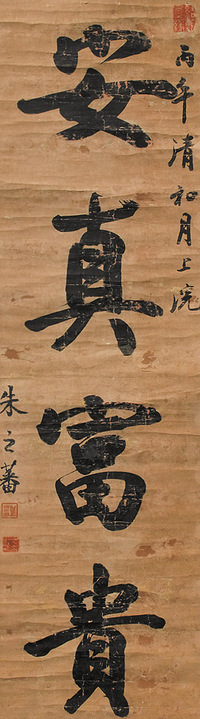 丙午清和月上浣
安真富貴
朱之蕃